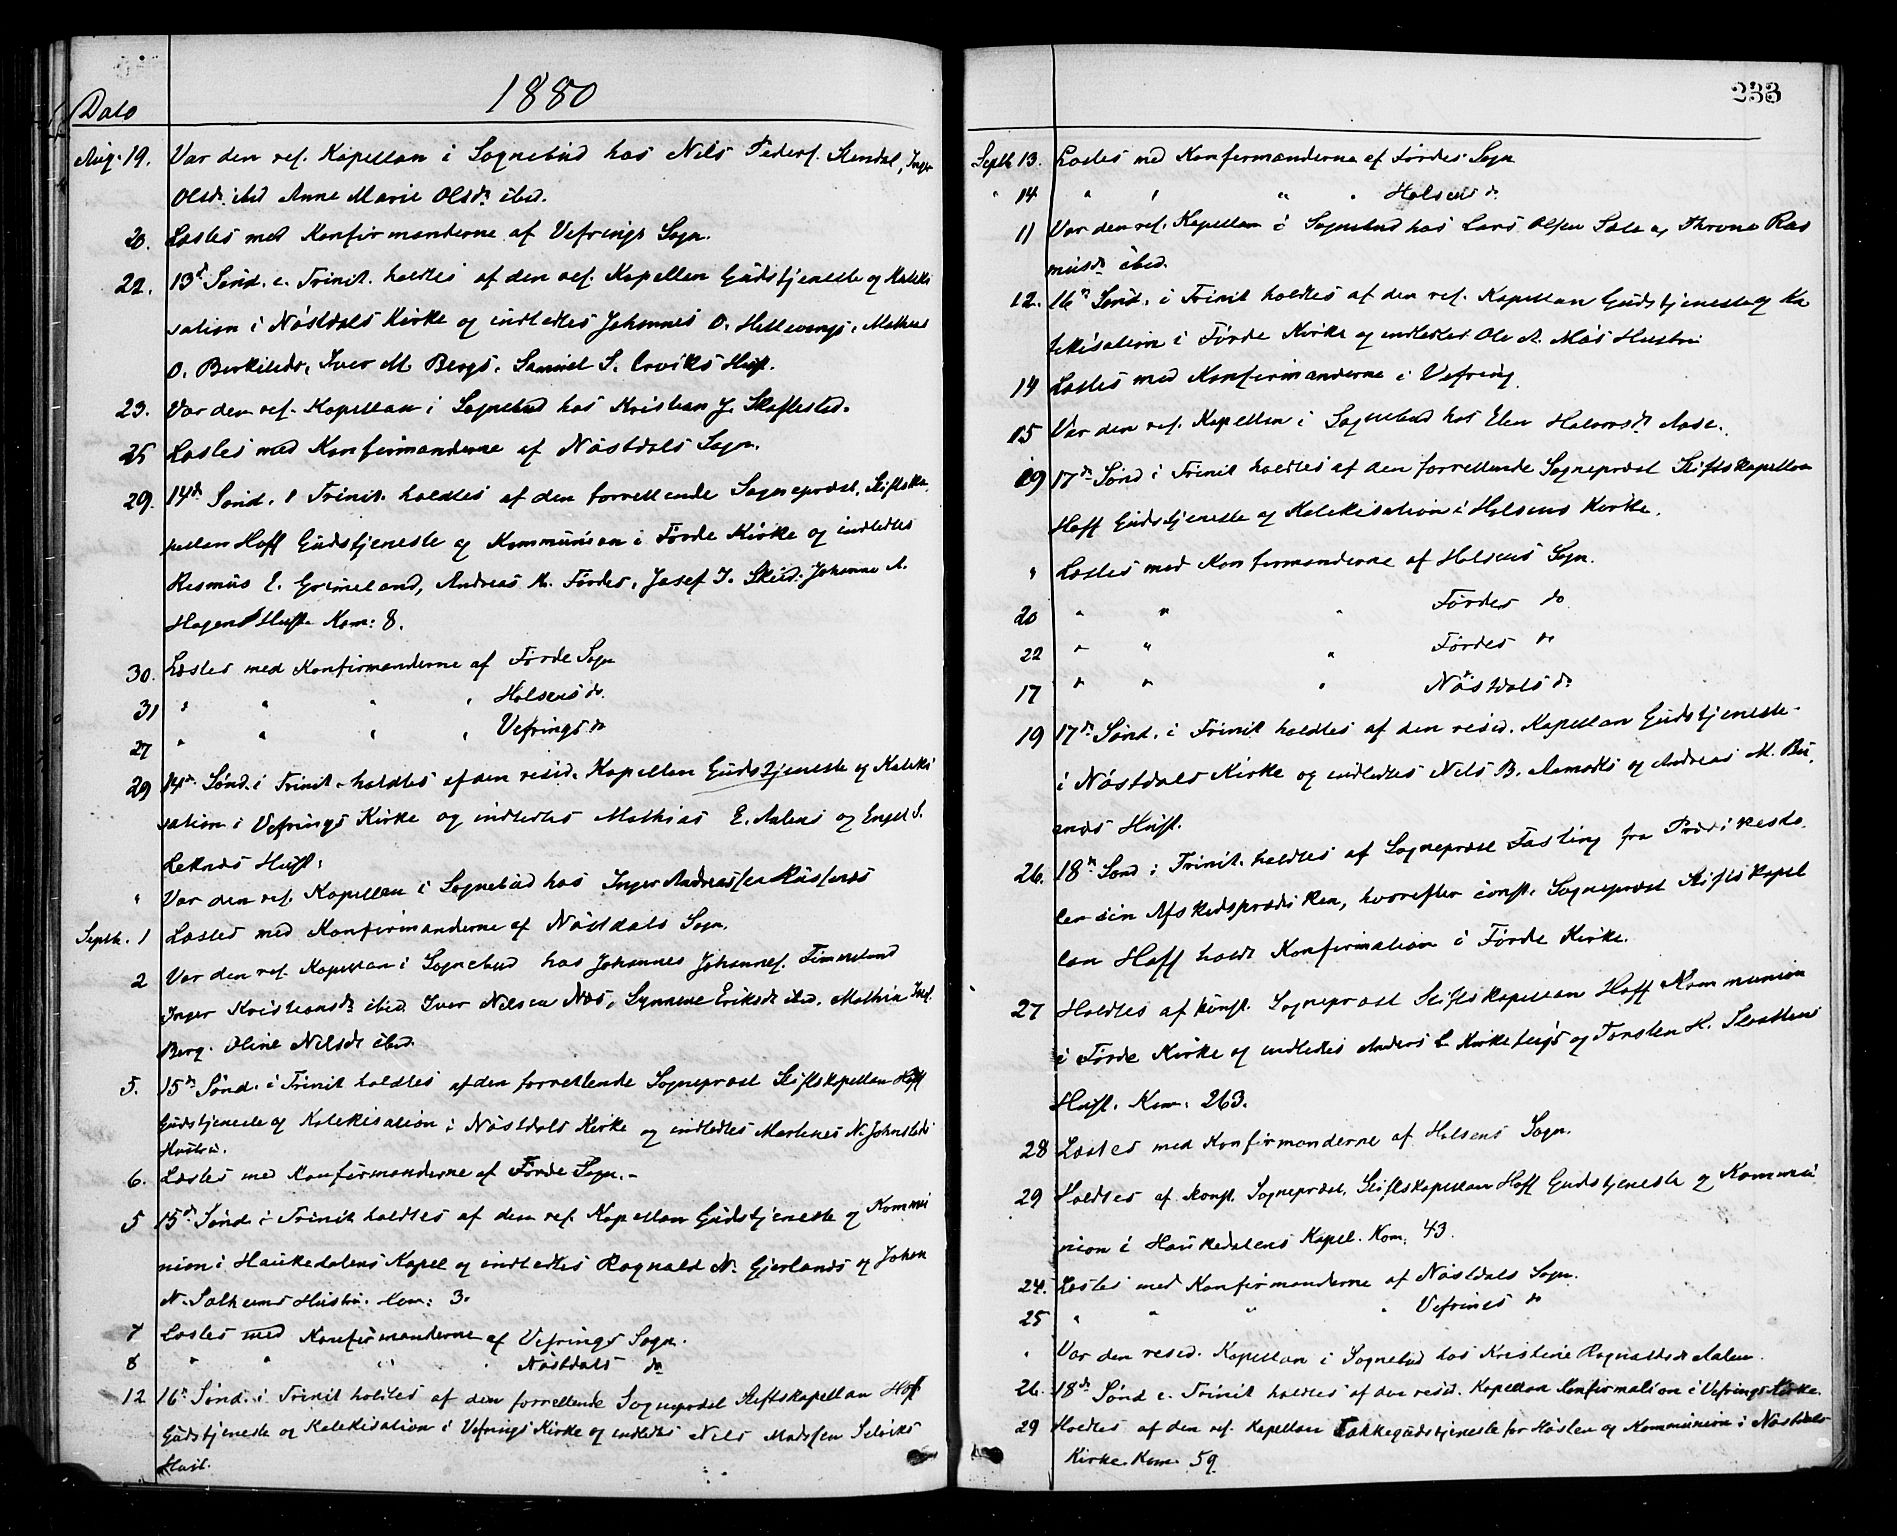 1880
Dato
Aug. 19. Var den res. Kapellan i Sognebud hos Nils Peders. Stendal, Inger
Olsdr. ibid Anne Marie Olsdr. ibid.
20. Læstes med Konfirmanderne af Vefrings Sogn.
22. 13de Sønd. e. Trinit. holdtes af den res. Kapellan Gudstjeneste og Kateki
sation i Nøstdals Kirke og indledtes Johannes O. Hellevangs, Mathias
O. Birkilids, Iver M. Bergs, Samuel S. Erviks Hust.
23. Var den res. Kapellan i Sognebud hos Kristian J. Skaflestad.
25 Læstes med Konfirmanderne af Nøstdals Sogn.
29. 14de Sønd. e Trinit. holdtes af den forrettende Sognepræst, Stiftska
pellan Hoff Gudstjeneste og Kommunion i Førde Kirke og indledtes
Rasmus E. Grimeland, Andreas A. Førdes, Josef J. Skeid, Johanne A.
Hagens Hust. Kom: 8.
30. Læstes med Konfirmanderne af Førde Sogn
31 " " " " Holsens do.
27 " " " " Vefrings do
29 14de Sønd. i Trinit. holdtes af den resid. Kapellan Gudstjeneste og Kateki
sation i Vefrings Kirke og indledtes Mathias E. Aalens og Engel S.
Leknæs Hust.
" Var den res. Kapellan i Sognebud hos Inger Andreassen
Septb. 1 Læstes med Konfirmanderne af Nøstdals Sogn.
2 Var den res. Kapellan i Sognebud hos Johannes Johannes. Timmeland
Inger Kristiansdr. ibid Iver Nilsen Næs, Synneve Eriksdr ibid. Mathia
Berg. Oline Nilsdr ibid.
5. 15de Sønd. i Trinit holdtes af den forrettende Sognepræst Stiftskapellan Hoff
Gudstjeneste og Katekisation i Nøstdals Kirke og indledtes Martines N. Johnsteds
Hustru.
6. Læstes med Konfirmanderne af Førde Sogn.-
5 15de Sønd. i Trinit holdtes af den res. Kapellan Gudstjeneste og Kommu
nion i Haukedalens Kapel og indledtes Ragnald N. Gjerlands og Johan
N. Solheims Hustru. Kom: 3.
7 Læstes med Konfirmanderne af Vefrings Sogn.
8 " " " " Nøstdals do
12 16de Sønd. i Trinit holdtes af den forrettende Sognepræst Stiftskapellan Hoff
Gudstjeneste og Katekisation i Vefrings Kirke og indledtes Nils Madssen Selviks
Hust.
233
Septb 13. Læstes med Konfirmanderne af Førdes Sogn
" 14 " " " " Holsens do
11 Var den res. Kapellan i Sognebud hos Lars Olsen Sole og Throne Ras
musdr ibid.
12. 16de Sønd. i Trinit holdtes af den res. Kapellan Gudstjeneste og Ka
tekisation i Førde Kirke og indledtes Ole A. Mos Hustru
14 Læstes med Konfirmanderne i Vefring.
15 Var den res. Kapellan i Sognebud hos Elen Aase.
19 17de Sønd i Trinit holdtes af den forrettende Sognepræst Stiftskapellan
Hoff Gudstjeneste og Katekisation i Holsens Kirke.
" Læstes med Konfirmanderne af Holsens Sogn.
20 " " " Førdes do
22 " " " Førdes do
17 " " " Nøstdals do
19 17de Sønd. i Trinit holdtes af den resid. Kapellan Gudstjeneste-
i Nøstdals Kirke og indledtes Nils B. Aamodts og Andreas M. Bu
ænæs Hust.
26. 18de Sønd i Trinit. holdtes af Sognepræst Fasting fra Prædikesto
len sin Afskedsprædiken, hvorefter const. Sognepræst Stiftskapel
lan Hoff holdt Konfirmation i Førde Kirke.
27 Holdtes af konst. Sognepræst Stiftskapellan Hoff Kommunion
i Førde Kirke og indledtes Anders L. Kirketeigs og Torsten H. Slaattens
Hust. Kom. 263.
28 Læstes med Konfirmanderne af Holsens Sogn.
29 Holdtes af konst. Sognepræst, Stiftskapellan Hoff Gudstjeneste og Kommu
nion i Haukedalens Kapel. Kom. 43.
24. Læstes med Konfirmanderne af Nøstdals Sogn.
25 " " " " Vefrings do
" Var den resid. Kapellan i Sognebud hos Kristine Ragnaldsdr Aalen.
26. 18de Sønd e. Trinit holdtes af den resid. Kapellan Konfirmation i Vefrings Kirke.
29 Holdtes af den res. Kapellan Takkegudstjeneste for Høsten og Kommunion i Nøstdals
Kirke. Kom. 59.